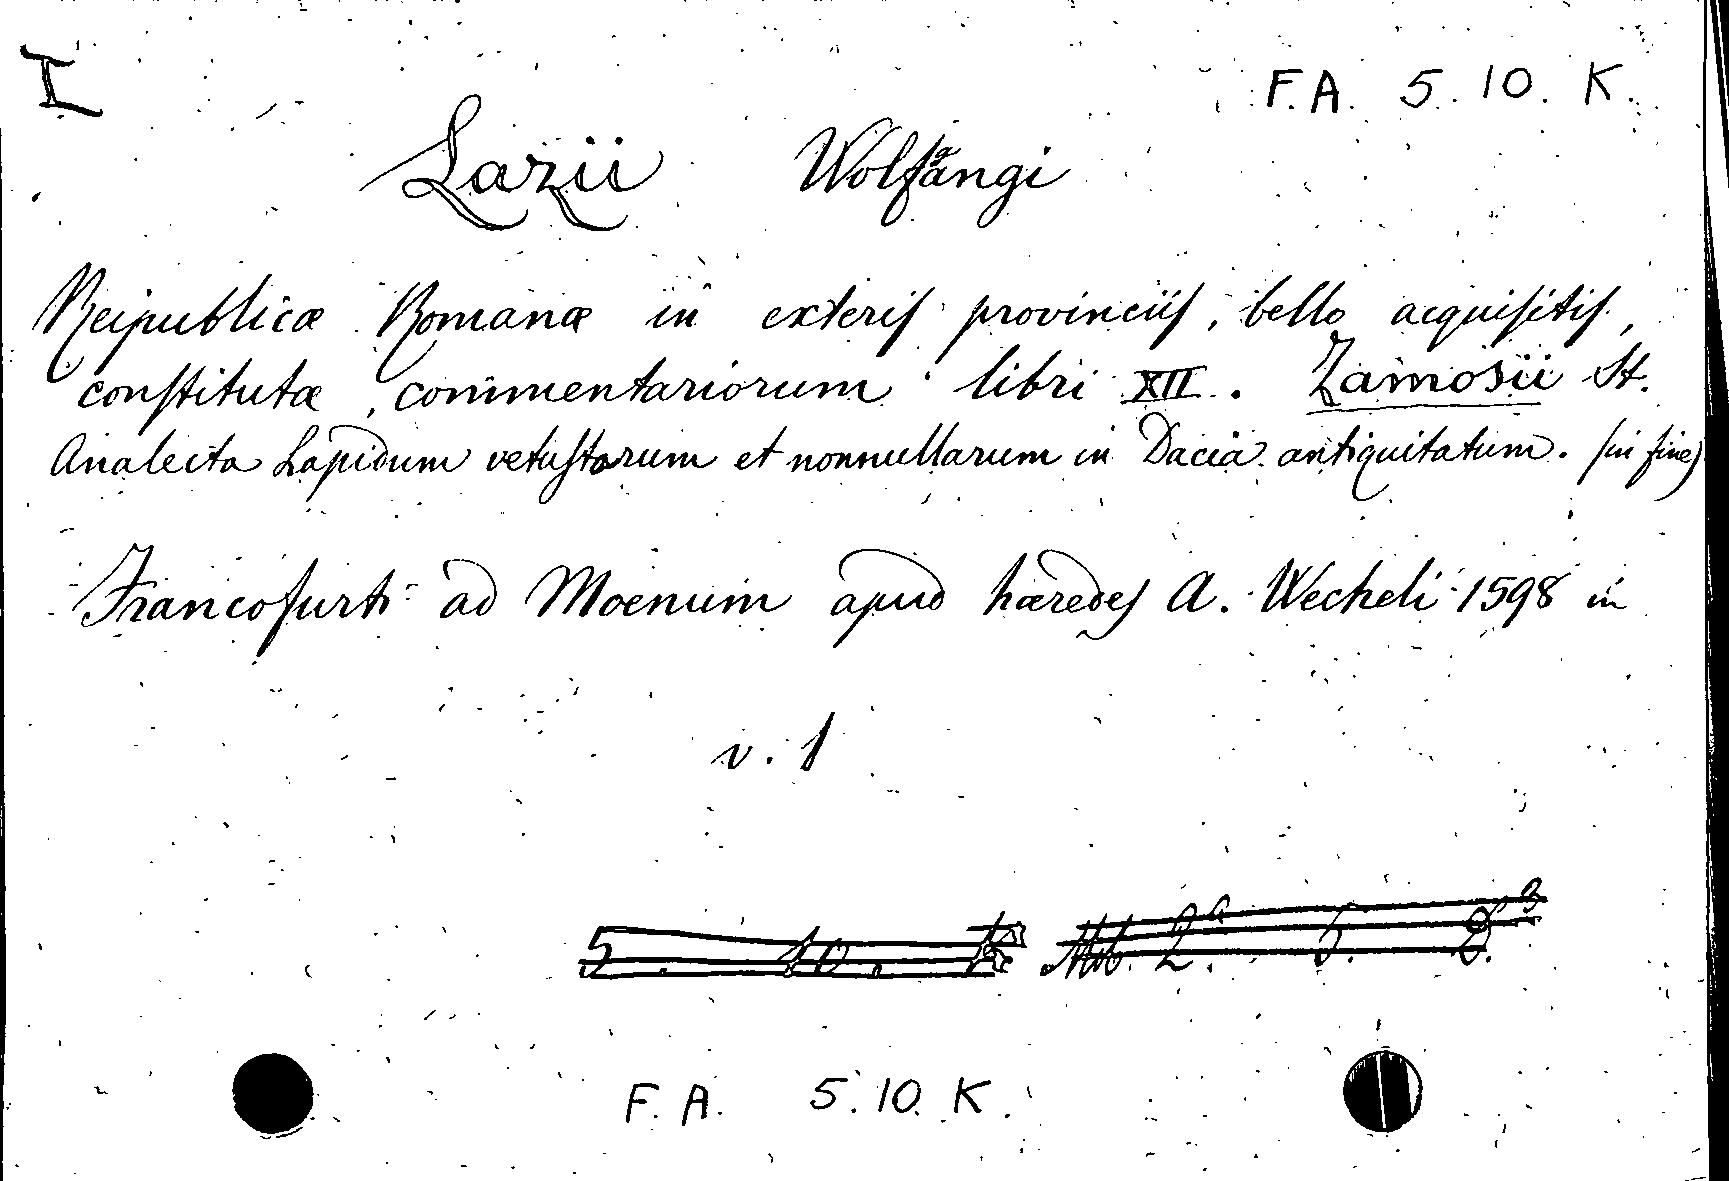 I
F. A. 5. 10. K.
Lazii Wolfgangi
Reipublicæ Romanæ in exteris provinciis, bello acquisitis,
constitutæ, commentariorum libri XII. Zamosii St.
Analecta Lapidum vetustorum et nonnullarum in Dacia antiquitatum. (in fine)
Francofurti ad Moenum apud hæredes A. Wecheli 1598 in
v. 1
5. 10. K
2a. 5. 
F. A. 5. 10. K.